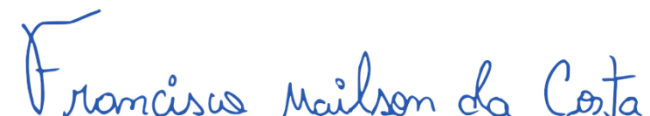 Francisco Mailson da Costa